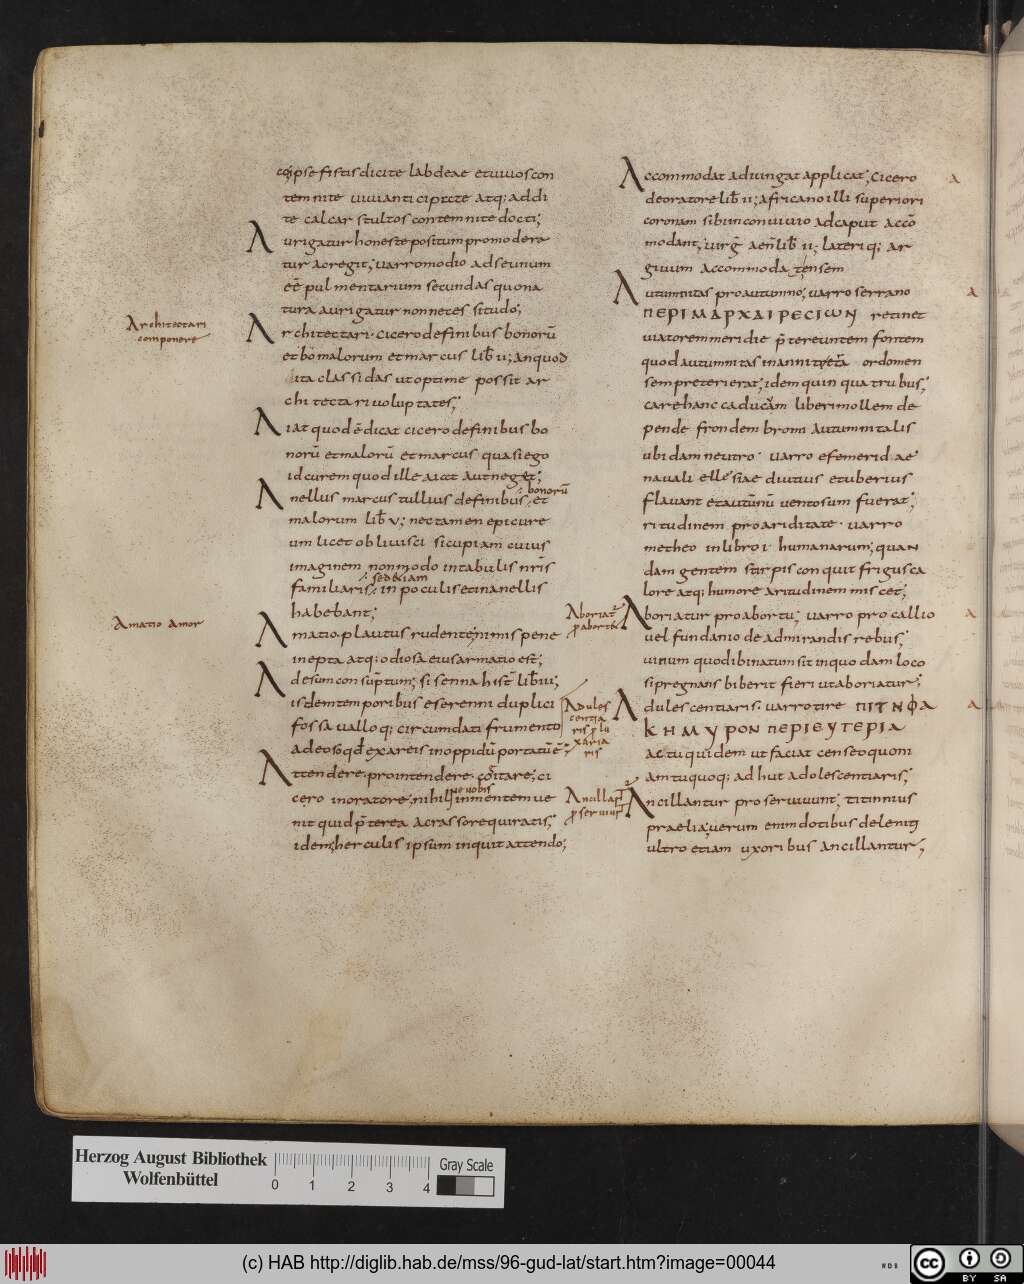 ipse fistis dicite labdeae et uiuos con
temnite uiuianti cipitte atq; addi
te calcar stultos contemnite docti;
Aurigatur honeste positum pro modera
tur acregit; uarro modio ad seunum
eē pulmentarium secundas quona
tura aurigatur non neces situdo;
Architectari componere
Architectari. cicero definibus bonorū
et malorum et marcus lib̄ ii; an quod
ita classidas ut optime possit ar
chitectari uoluptates;
Aiat quod ē dicat cicero definibus bo
norū et malorū et marcus quasi ego
id curem quod ille aiat aut neget;
bonorū
Anellus marcus tullius definibus et
malorum lib̄ v; nec tamen epicure
um licet obliuisci si cupiam cuius
imaginem non modo in tabulis nr̄is
sed etiam
familiaris in poculis et in anellis
habebant;
Amatio Amor
Amatio. plautus rudente; nimis pene
inepta atq; odiosa eius armatio est;
Adesum consūptum; sisenna hist̄ lib̄ iii;
isdem temporibus eserenni duplici
fossa uallo q; circumdati frumento
adeoso qd̄ ex areis in oppidū portatū ē;
Attendere. pro intendere. cogitare; ci
ue uobis
cero in oratore; nihil in mentem ue
nit quid p̄terea a crasso requiratis;
idem; herculis ipsum inquit attendo;
Accommodat adiungat applicat; Cicero
de oratore lib̄ ii; africano illi superiori
coronam sibi in conuiuio ad caput accō
modant; uirḡ aen̄ lib̄ ii; lateri q; ar
giuum accommodat ensem
a
Autumnitas pro autumno; uarro serrano
ΠΕΡΙ ΜΑΡΧΑΙΡΕCΙωΝ retinet
uiatorem meridie p̄tereuntem fontem
quod autumnitas in anni ordomen
semp reterierat; idem quinquatrubus;
carehanc caducam liberi mollem de
pende frondem bromi Autumnitalis
ubidam neutro. uarro efemerid ae
nauali ellesiae diutius et uberius
flauant et autūnū uentosum fuerat;
ritudinem pro ariditate. uarro
metheo in libro i. humanarum; quan
dam gentem stirpis conquit frigus ca
lore atq; humore aritudinem miscet;
a
Aboriat̄ p aborti
Aboriatur pro abortu; uarro pro callio
uel fundanio de admirandis rebus;
uinum quod ibi natum sit in quodam loco
si pregnans biberit fieri ut aboriatur;
a
Adules
centia
ris p lu
xaria
ris
Adulescentiaris. uarro tire ΠΙΤΝΦΑ
ΚΗΜΥΡΟΝ ΠΕΡΙΕΥΤΕΡΙΑ
ac tu quidem ut faciat censeo quoni
am tu quoq; ad hut adolescentiaris;
Ancillat̄
p seruiut̄
Ancillantur pro seruiuunt; titinnius
praelia; uerum enim dotibus deleniti
ultro etiam uxoribus ancillantur;
Herzog August Bibliothek
Wolfenbüttel
0 1 2 3 4
Gray Scale
(c) HAB http://diglib.hab.de/mss/96-gud-lat/start.htm?image=00044
WDB
cc BY SA